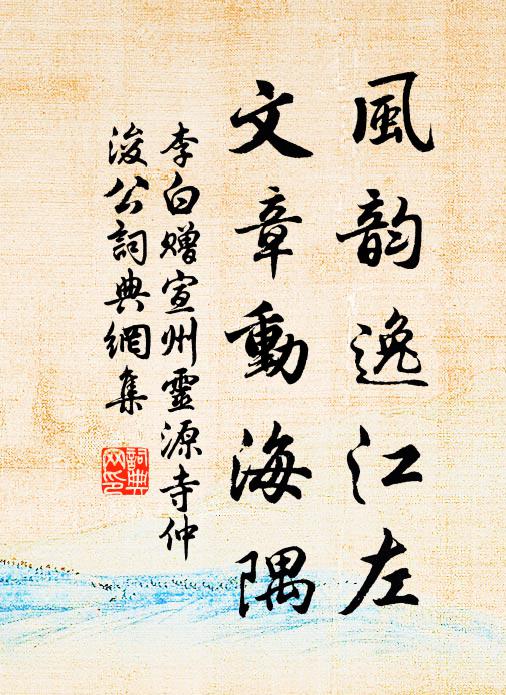 風韵逸江左
文章動海隅
李白贈宣州靈源寺仲
浚公詞典網集
詞典
网印